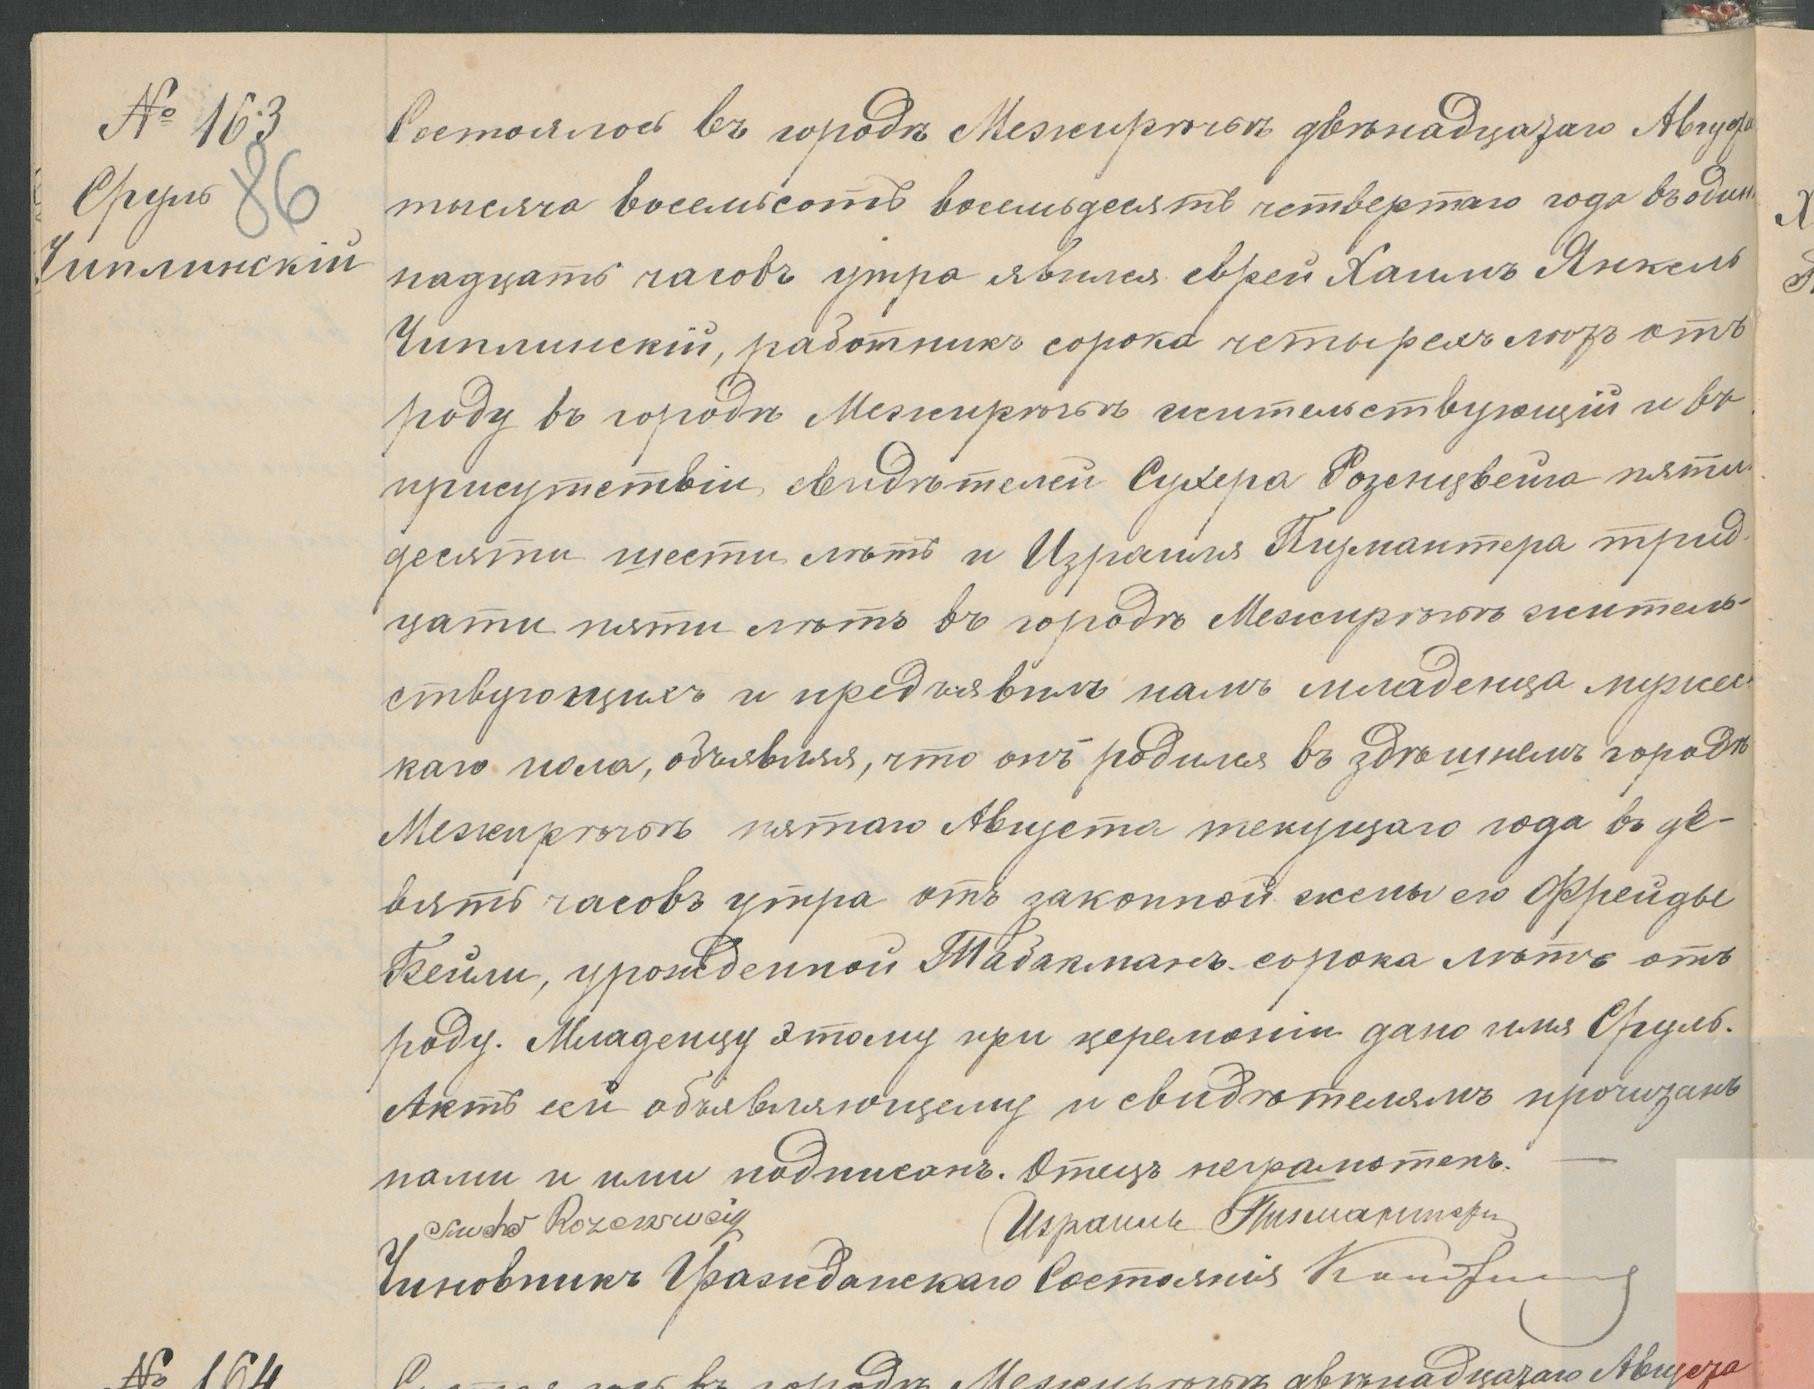 № 163
Сруль 86
Чиплинскій
Состоялось въ городѣ Межирѣчьѣ двѣнадцатаго Августа
тысяча восемьсотъ восемьдесятъ четвертаго года въ один-
надцать часовъ утра явился еврей Хаимъ Янкель
Чиплинскій, работникъ сорока четырехъ лѣтъ отъ
роду въ городѣ Межирѣчьѣ жительствующій и въ
присутствіи свидѣтелей Сухера Розенцвейга пяти-
десяти шести лѣтъ и Израиля Пизмантера трид-
цати пяти лѣтъ въ городѣ Межирѣчьѣ житель-
ствующихъ и предъявилъ намъ младенца мужес-
каго пола, объявляя, что онъ родился въ здѣшнемъ городѣ
Межирѣчьѣ пятаго Августа текущаго года въ де-
вять часовъ утра отъ законной жены его Фрейды
Бейли, урожденной Табакманъ сорока лѣтъ отъ
роду. Младенцу этому при церемоніи дано имя Сруль.
Актъ сей объявляющему и свидѣтелямъ прочитанъ
нами и ими подписанъ. Отецъ неграмотенъ. —
Sucher Rozenzweig Израиль Пизмантеръ
Чиновникъ Гражданскаго Состоянія
№ 164
Состоялось въ городѣ Межирѣчьѣ двѣнадцатаго Августа